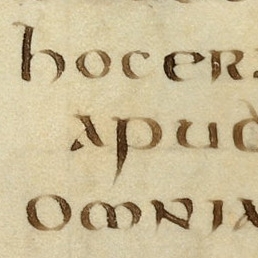 hocera
apud
omnia